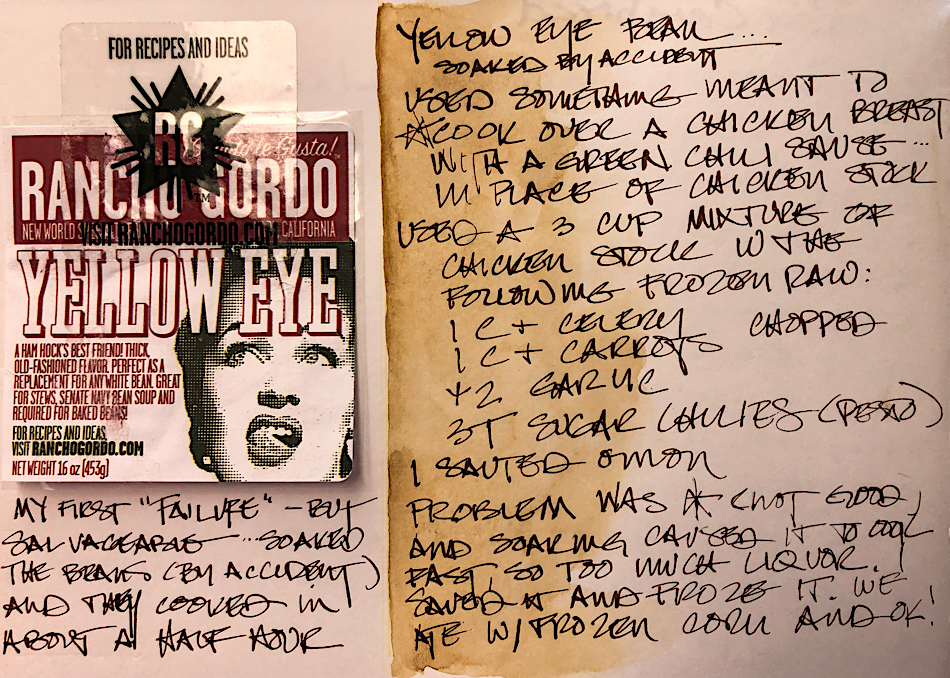 FOR RECIPES AND IDEAS
RG
RANCHO GORDO
NEW WORLD CALIFORNIA
VISIT RANCHOGORDO.COM
YELLOW EYE
A HAM HOCK'S BEST FRIEND! THICK,
OLD-FASHIONED FLAVOR. PERFECT AS A
REPLACEMENT FOR ANY WHITE BEAN. GREAT
FOR STEWS, SENATE NAVY BEAN SOUP AND
REQUIRED FOR BAKED BEANS!
FOR RECIPES AND IDEAS,
VISIT RANCHOGORDO.COM
NET WEIGHT 16 oz (453g)
MY FIRST "FAILURE" - BUT
SALVAGEABLE ... SOAKED
THE BEANS (BY ACCIDENT)
AND THEY COOKED IN
ABOUT A HALF HOUR
YELLOW EYE BEAN ...
SOAKED BY ACCIDENT
USED SOMETHING MEANT TO
* COOK OVER A CHICKEN BREAST
WITH A GREEN CHILI SAUSE ...
IN PLACE OF CHICKEN STOCK
USED A 3 CUP MIXTURE OF
CHICKEN STOCK W THE
FOLLOWING FROZEN RAW:
1 C + CELERY CHOPPED
1 C + CARROTS
+2 GARLIC
3T SUGAR CHILIES (PESTO)
I SAUTED ONION
PROBLEM WAS * (NOT GOOD)
AND SOAKING CAUSED IT TO COOK
FAST, SO TOO MUCH LIQUOR.
SAVED IT AND FROZE IT. WE
ATE W/ FROZEN CORN AND OK!